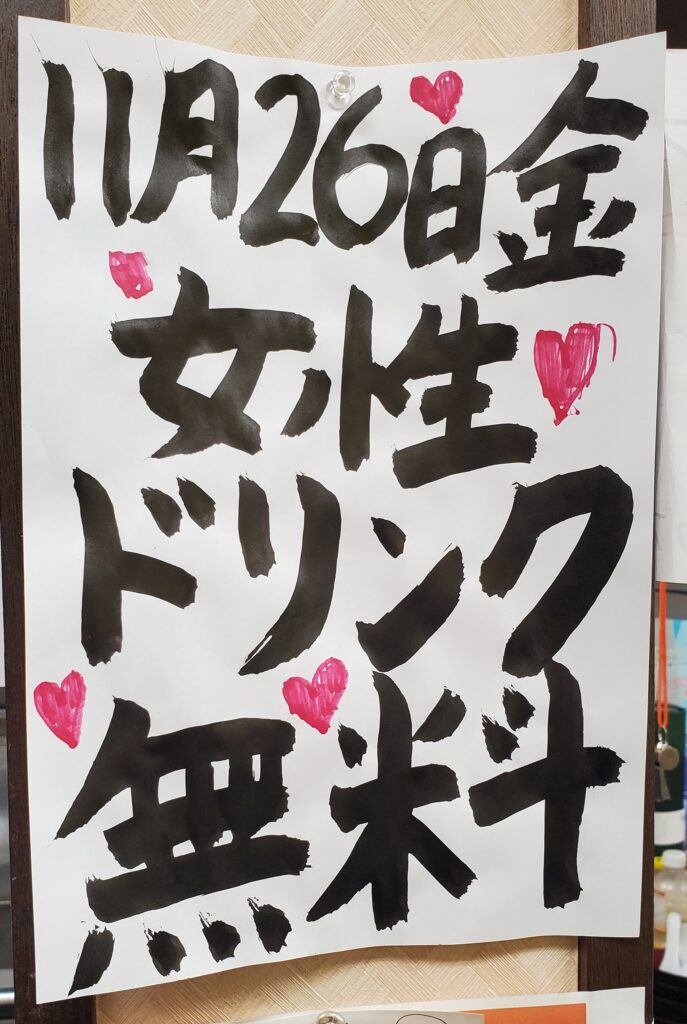 11月26日金
女性
ドリンク
無料